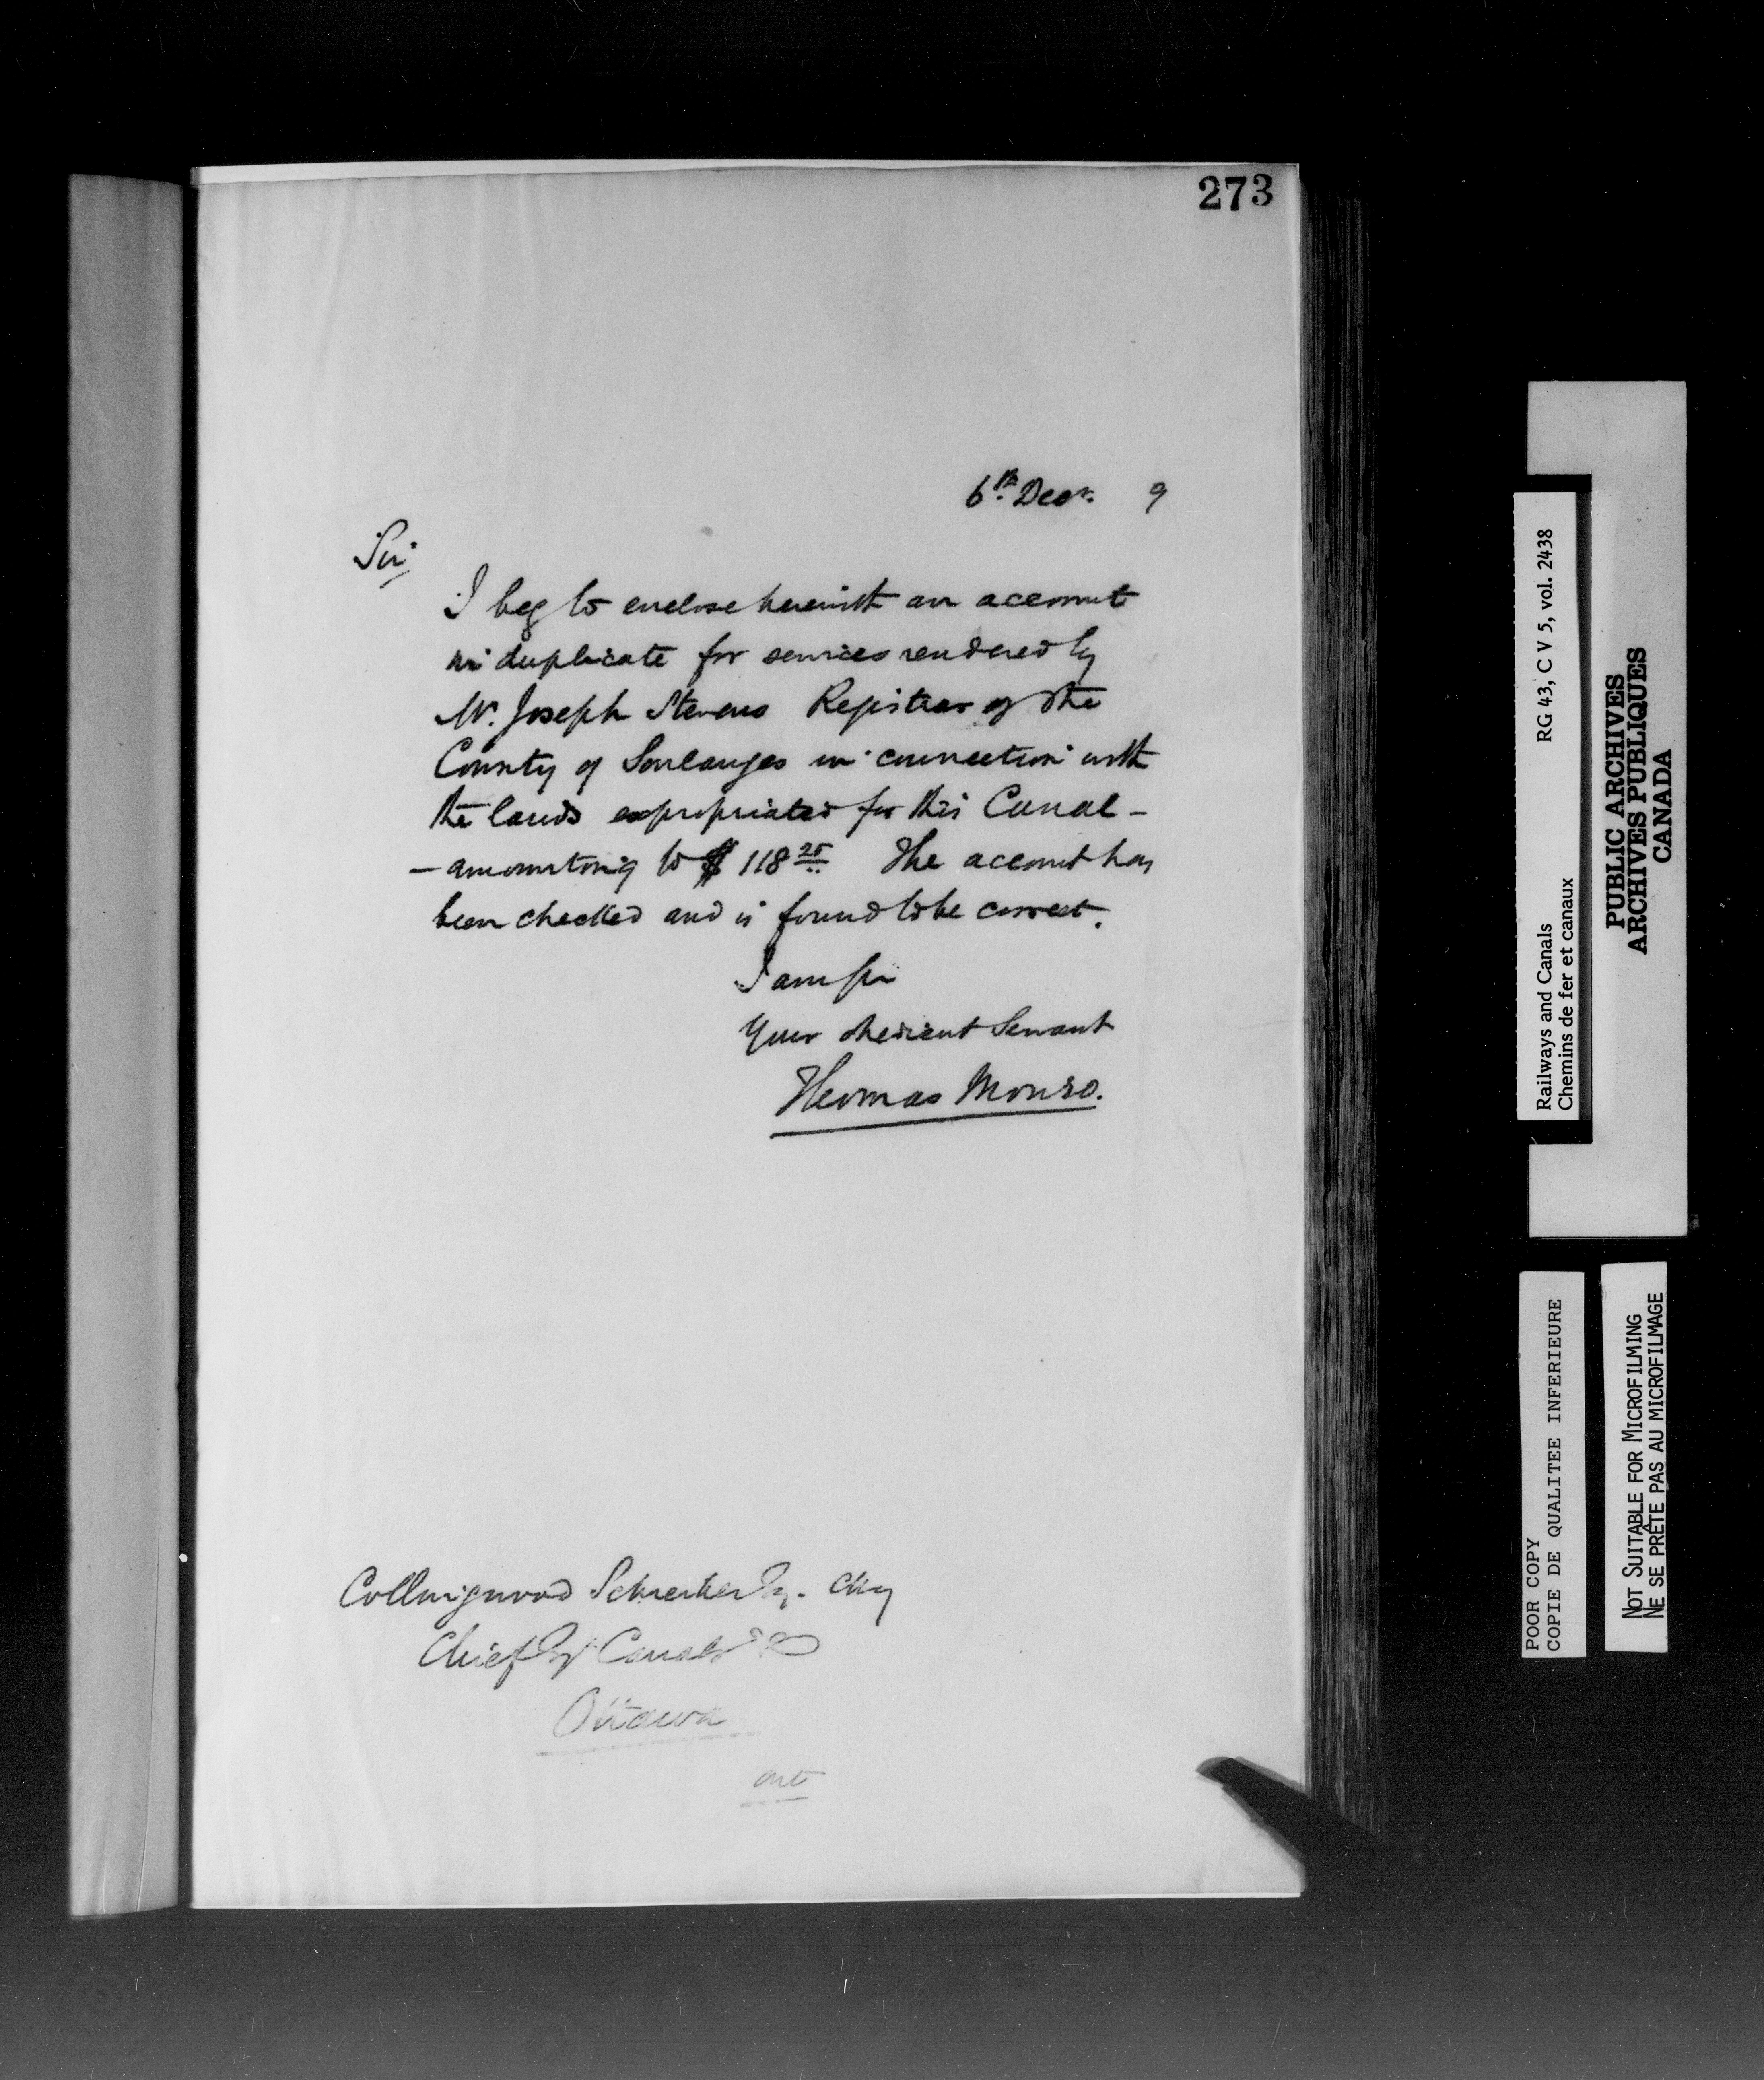 273
6th Decr. 9
Sir,
I beg to enclose herewith an account
in duplicate for services rendered by
Mr. Joseph Stevens Registrar of the
County of Soulanges in connection with
the lands expropriated for this Canal -
- amounting to $ 118 25 The account has
been checked and is found to be correct.
I am Sir
Your obedient Servant
Thomas Monro.
Collingwood Schreiber Esq.
Chief Eng. Canals
Ottawa
Railways and Canals RG 43, C V 5, vol. 2438
Chemins de fer et canaux
PUBLIC ARCHIVES
ARCHIVES PUBLIQUES
CANADA
POOR COPY
COPIE DE QUALITEE INFERIEURE
NOT SUITABLE FOR MICROFILMING
NE SE PRÊTE PAS AU MICROFILMAGE